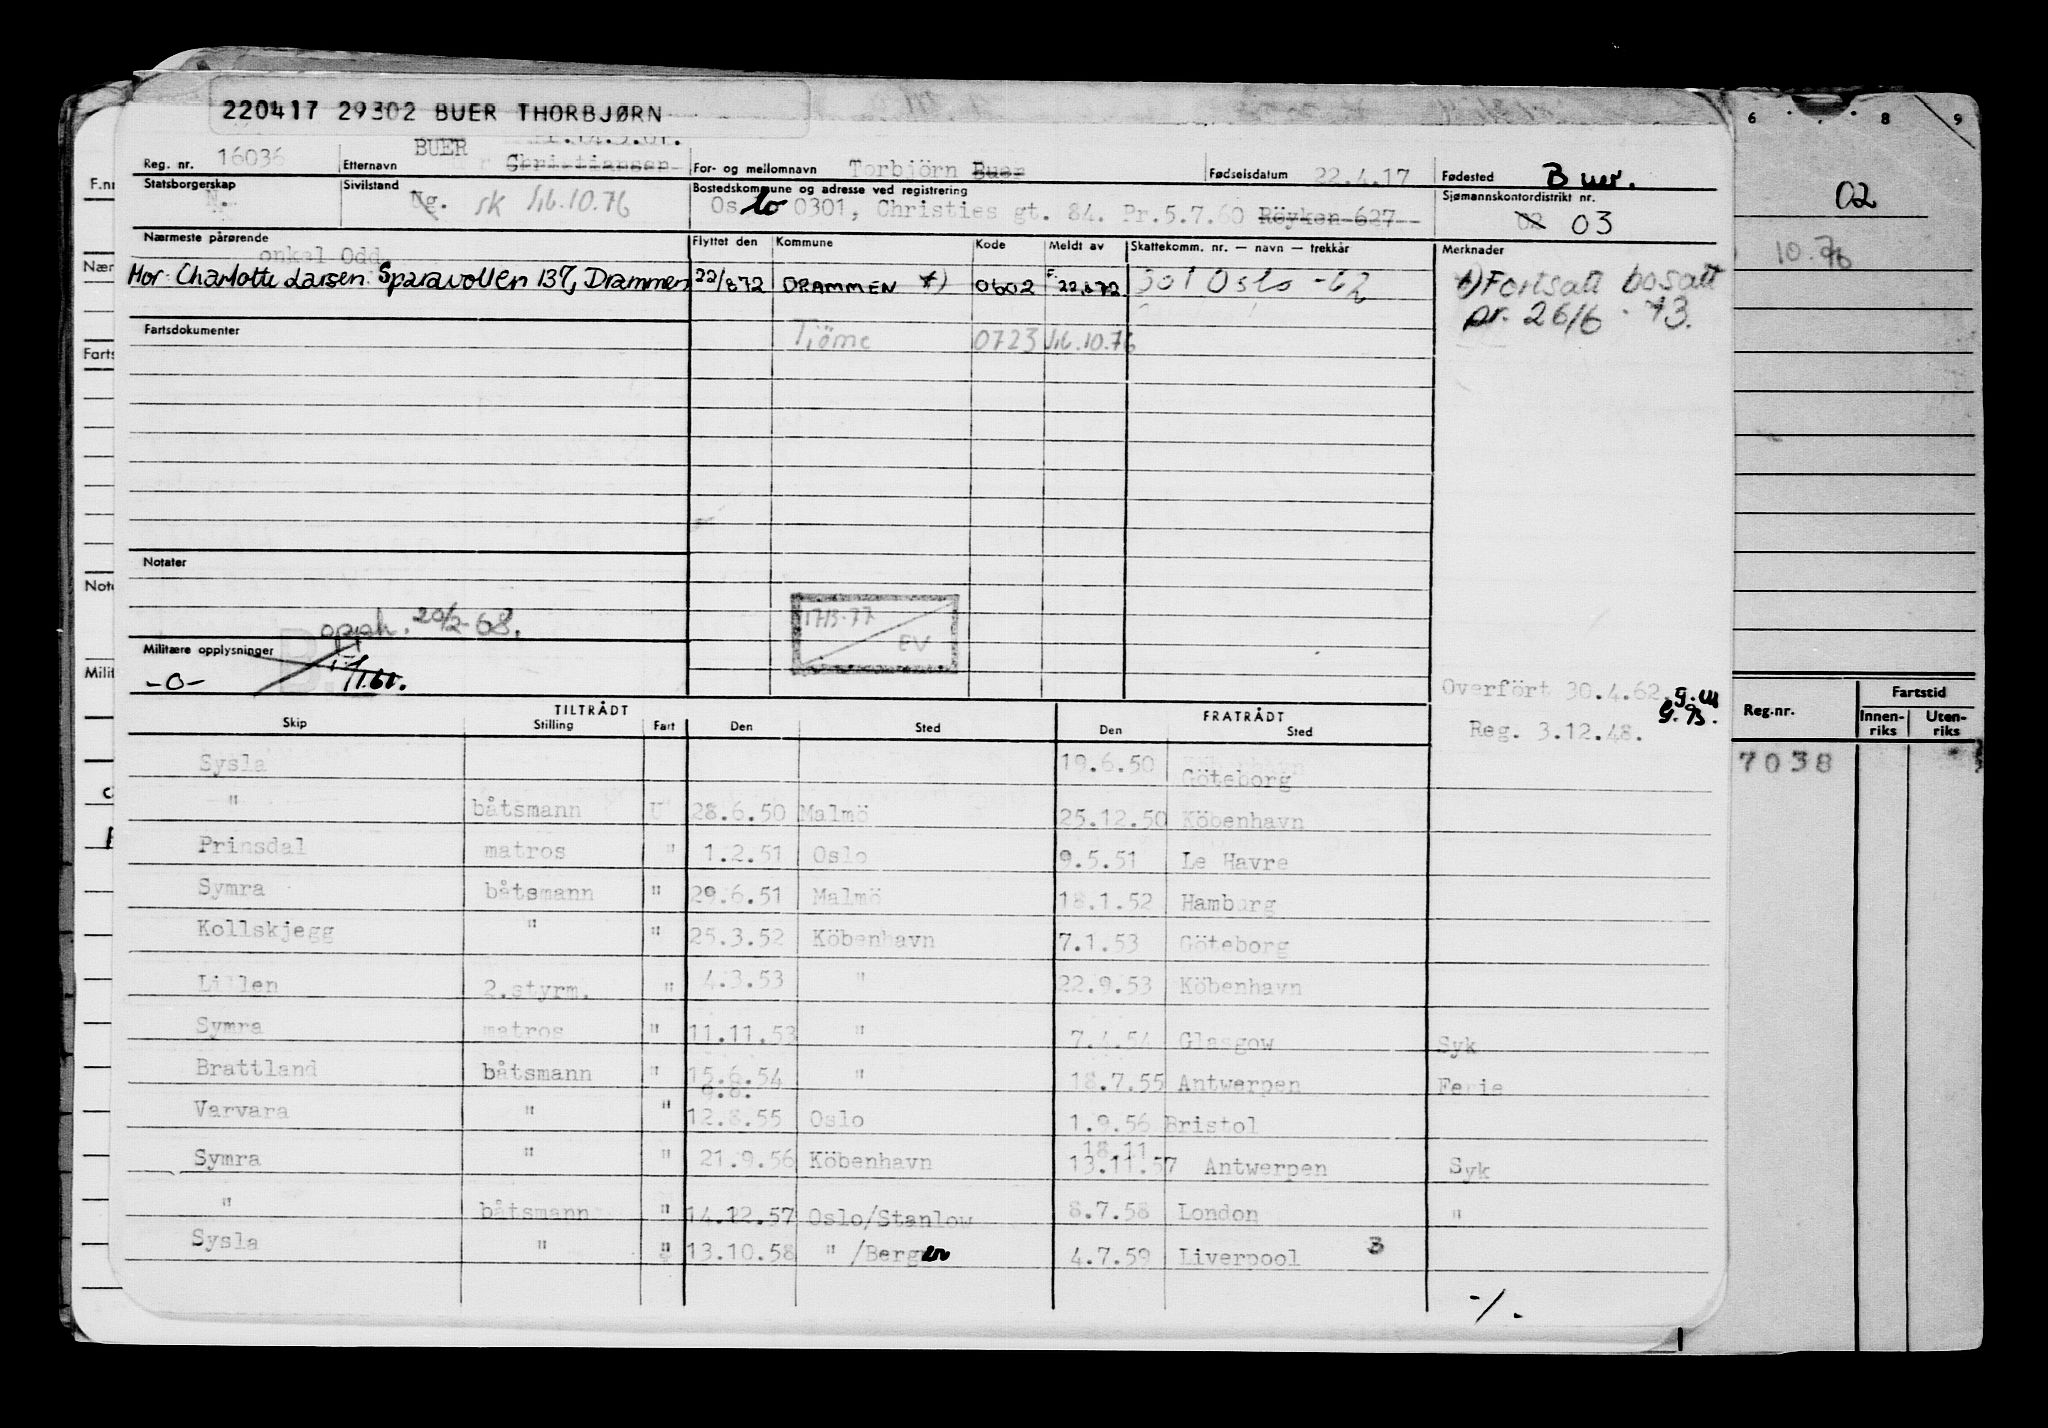 220417 29302 BUER THORBJØRN
BUER
Reg. nr. 16036 Etternavn Christiansen For- og mellomnavn Torbjörn Buer Fødselsdatum 22.4.17 Fødested Buer.
Statsborgerskap N. Sivilstand Ug. sk 10.76 Bostedskommune og adresse ved registrering Sjømannskontordistrikt nr.
Oslo 0301, Christies gt. 84. Pr.5.7.60 Röyken 627 02 03
Nærmeste pårørende Flyttet den Kommune Kode Meldt av Skattekomm. nr. — navn — trekkår Merknader
onkel Odd
Mor: Charlotte Larsen. Sparavollen 137, Drammen 22/872 DRAMMEN *) 0602 F. 22.8.72 301 Oslo -62 *) Fortsatt bosatt
pr. 26/6 - 73.
Fartsdokumenter Tjöme 0723 10.76
Notater
opph. 20/2-68.
17/3-77
EV
Militære opplysninger
-0-
Overfört 30.4.62
Reg. 3.12.48.
TILTRÅDT FRATRÅDT
Skip Stilling Fart Den Sted Den Sted
Sysla 19.6.50 Göteborg
" båtsmann U 28.6.50 Malmö 25.12.50 Köbenhavn
Prinsdal matros " 1.2.51 Oslo 9.5.51 Le Havre
Symra båtsmann " 29.6.51 Malmö 18.1.52 Hamburg
Kollskjegg " " 25.3.52 Köbenhavn 7.1.53 Göteborg
Lillen 2.styrm. " 4.3.53 " 22.9.53 Köbenhavn
Symra matros " 11.11.53 " 7.4.54 Glasgow Syk
Brattland båtsmann " 15.6.54 " 18.7.55 Antwerpen Ferie
9.8.
Varvara " " 12.8.55 Oslo 1.9.56 Bristol
18.11
Symra " " 21.9.56 Köbenhavn 13.11.57 Antwerpen Syk
" båtsmann " 14.12.57 Oslo/Stanlow 8.7.58 London "
Sysla " " 13.10.58 " /Bergen 4.7.59 Liverpool 3
-/.
6 8 9
02
10.76
Reg.nr. Fartstid
Innen-riks Uten-riks
7038
F.nr
Nær
Farts
Note
Milit